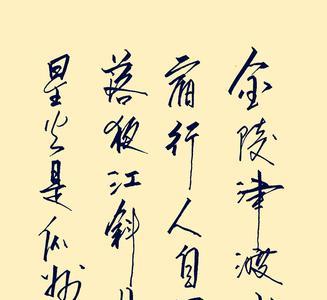 金陵津渡
宿行人自
落夜江斜
星火是瓜州